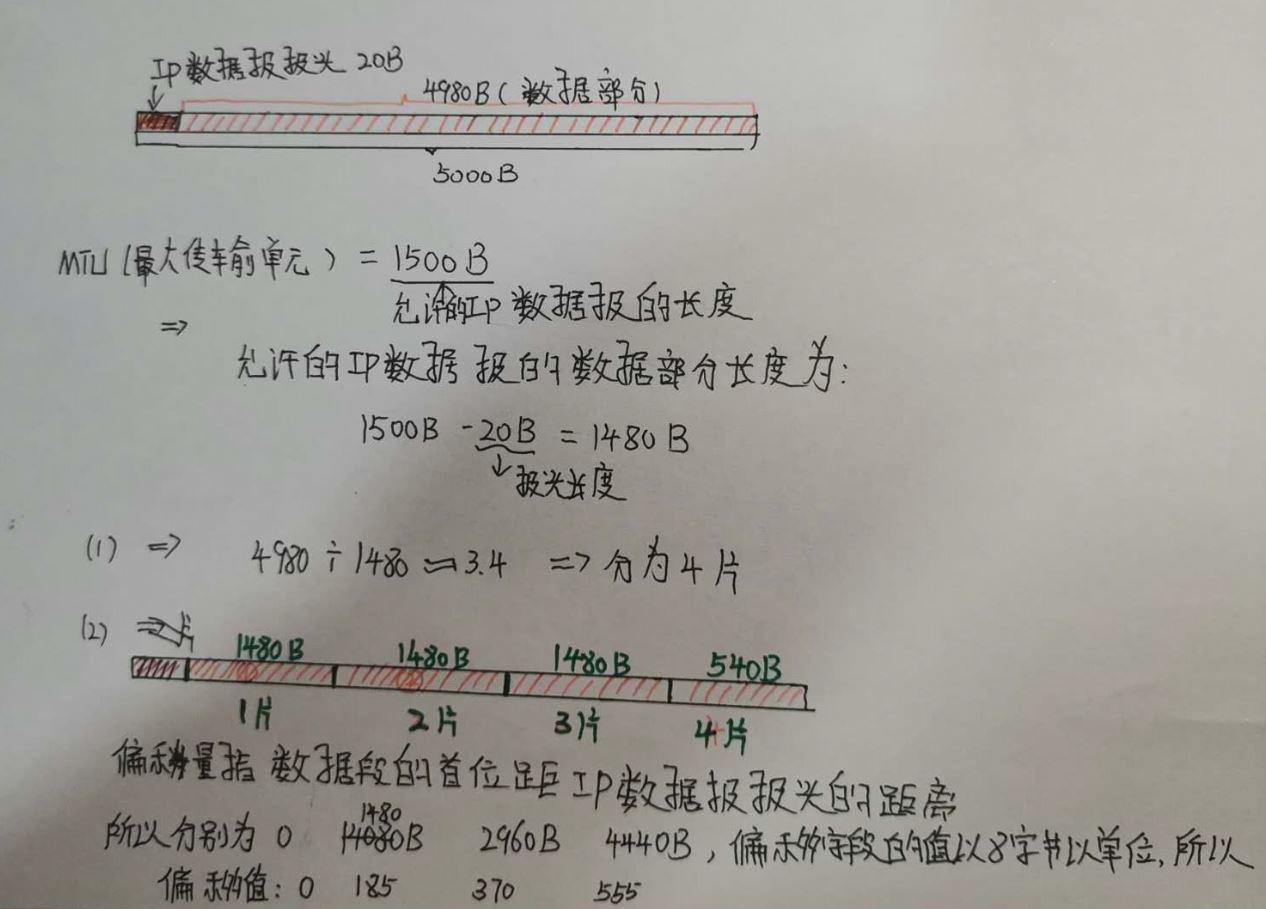 IP数据报报头 20B
4980B(数据部分)
5000B
MTU(最大传输单元) = 1500B
允许的IP数据报的长度
=>
允许的IP数据报的数据部分长度为:
1500B - 20B = 1480B
报头长度
(1) => 4980 ÷ 1480 ≈ 3.4 => 分为4片
(2) =>
1480B 1480B 1480B 540B
1片 2片 3片 4片
偏移量指数据段的首位距IP数据报报头的距离
1480
所以分别为 0 2960B 4440B, 偏移字段的值以8字节以单位, 所以
偏移值: 0 185 370 555